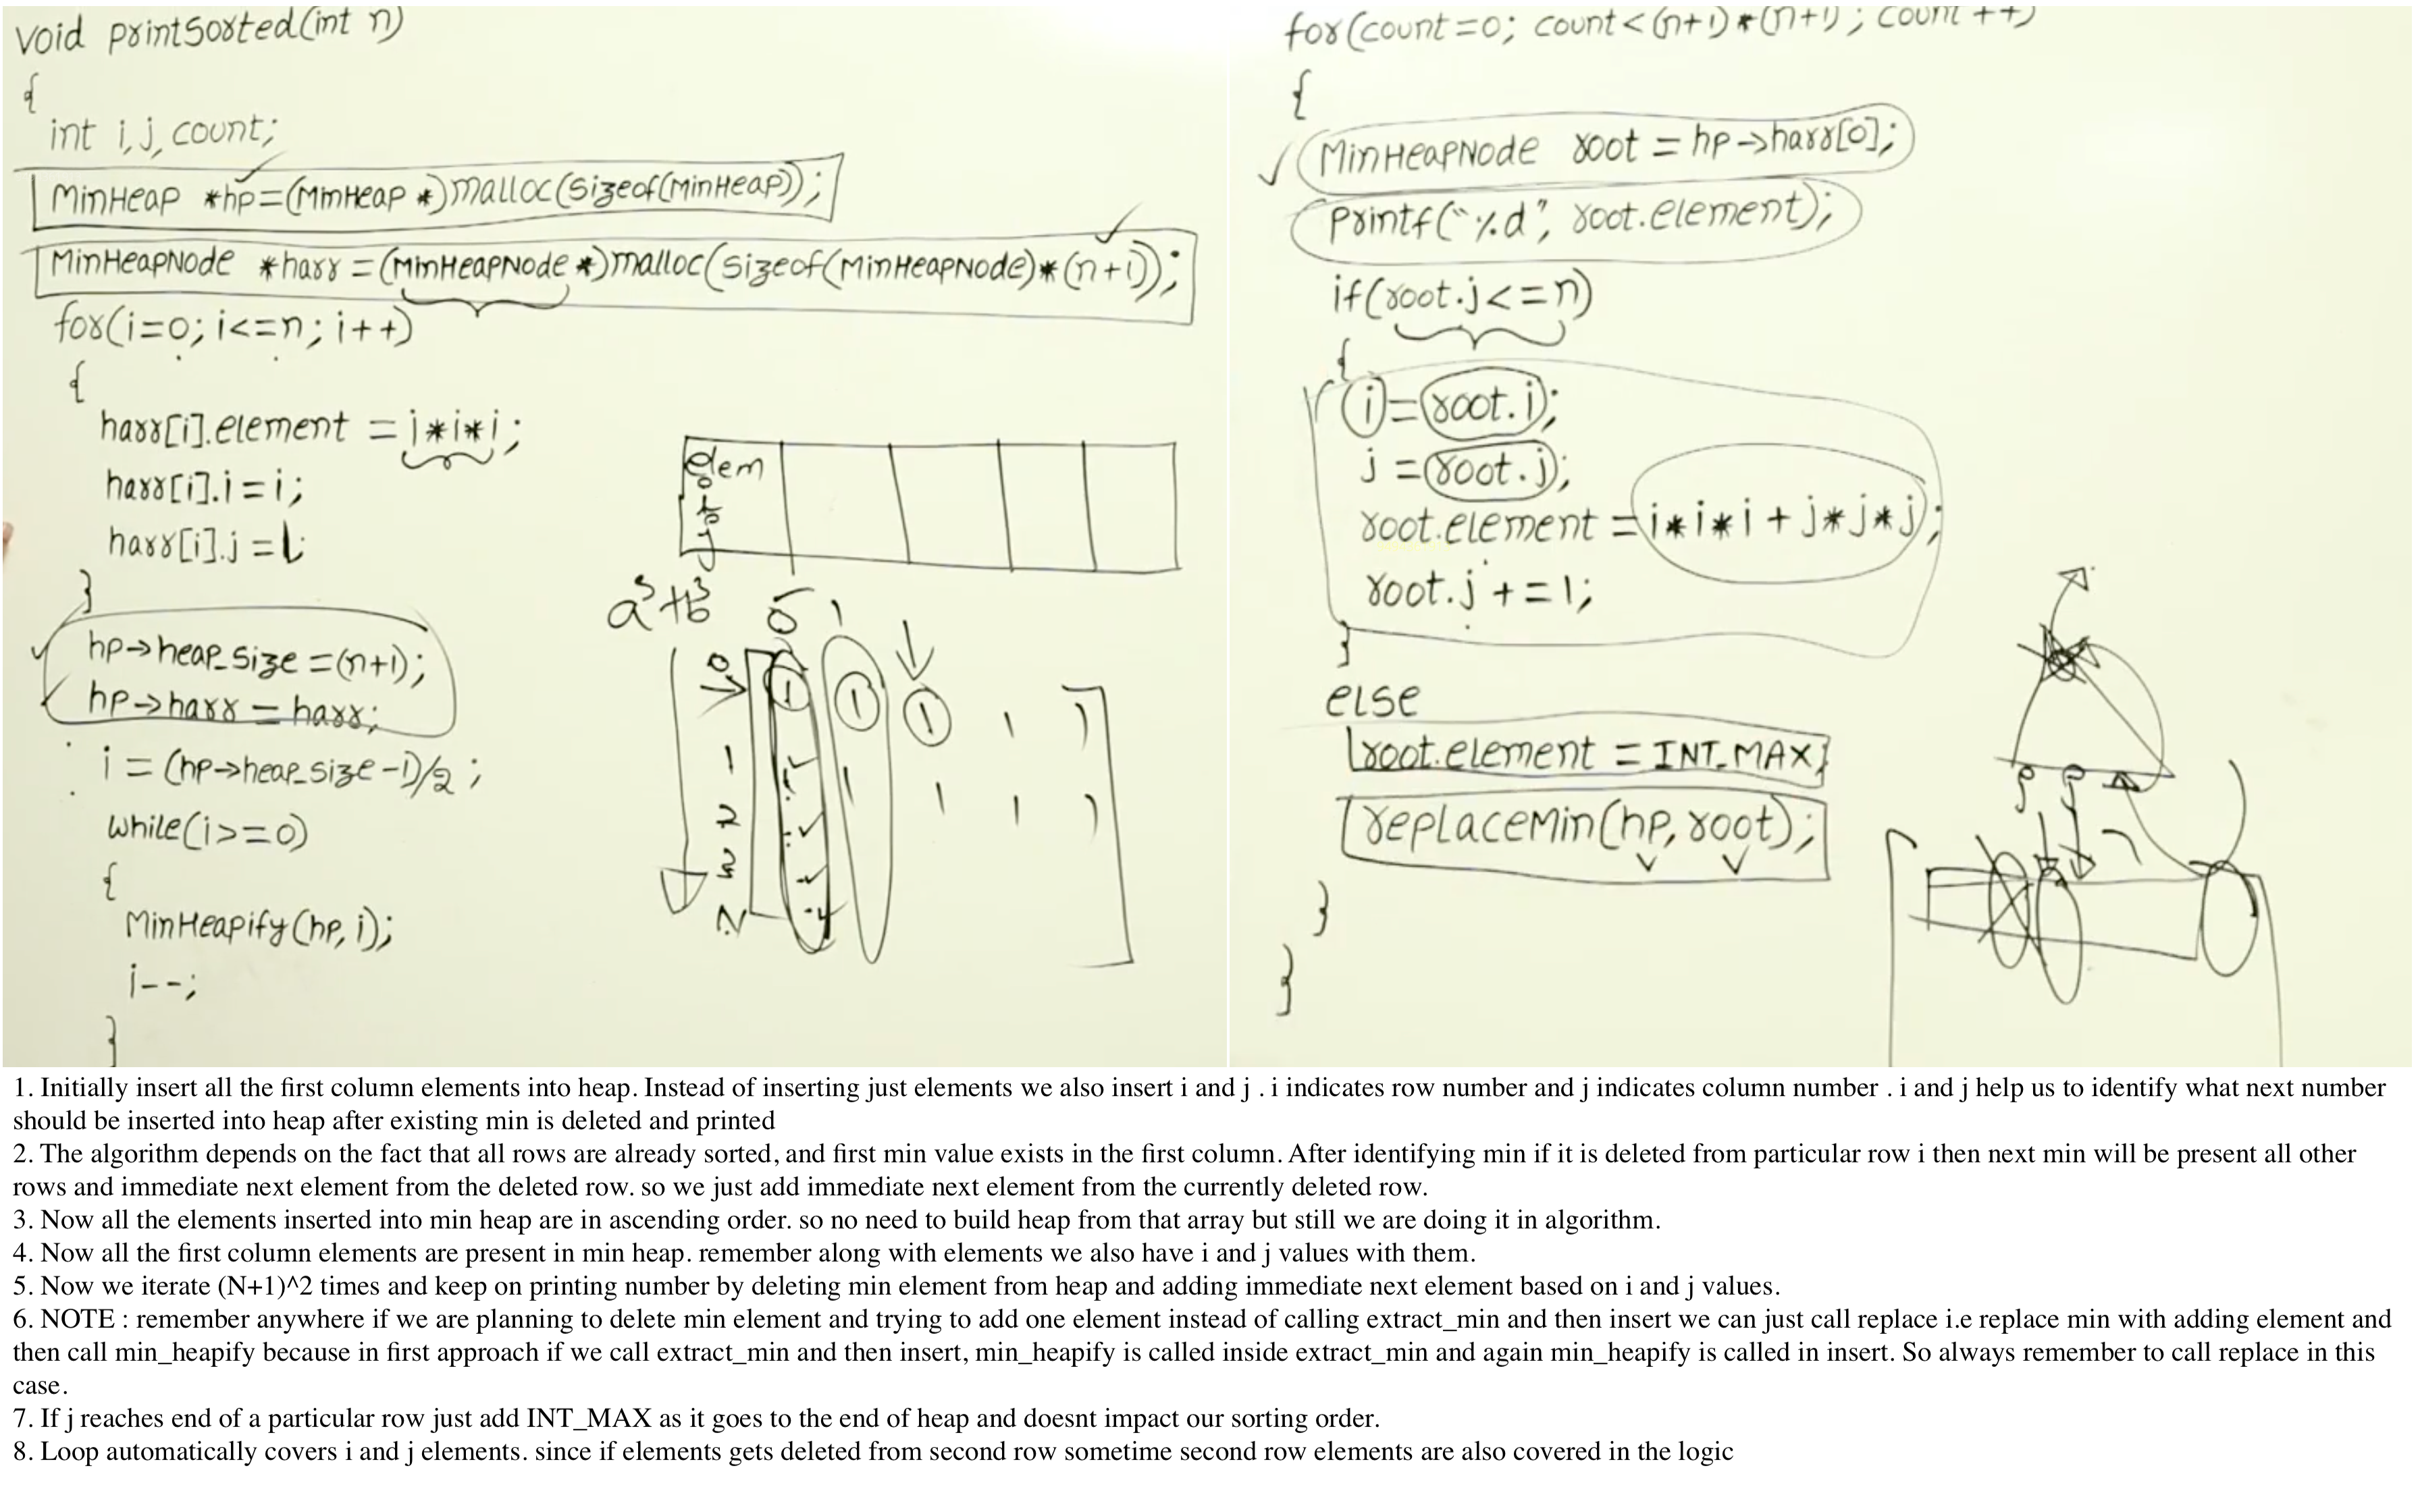 void printSorted(int n)
{
int i,j,count;
MinHeap *hp=(MinHeap *)malloc(sizeof(MinHeap));
MinHeapNode *harr=(MinHeapNode *)malloc(sizeof(MinHeapNode)*(n+1));
for(i=0; i<=n; i++)
{
harr[i].element = i*i*i;
harr[i].i=i;
harr[i].j=1;
}
hp->heap_size=(n+1);
hp->harr = harr;
i = (hp->heap_size-1)/2 ;
while(i>=0)
{
MinHeapify(hp, i);
i--;
}
elem
a³+b³
0 1
0
1
2
3
N
for(count=0; count<(n+1)*(n+1); count++)
{
MinHeapNode root = hp->harr[0];
Printf("%d", root.element);
if(root.j<=n)
{
i=root.i;
j=root.j;
root.element =i*i*i + j*j*j;
root.j +=1;
}
else
root.element = INT_MAX;
replaceMin(hp,root);
}
}
1. Initially insert all the first column elements into heap. Instead of inserting just elements we also insert i and j . i indicates row number and j indicates column number . i and j help us to identify what next number
should be inserted into heap after existing min is deleted and printed
2. The algorithm depends on the fact that all rows are already sorted, and first min value exists in the first column. After identifying min if it is deleted from particular row i then next min will be present all other
rows and immediate next element from the deleted row. so we just add immediate next element from the currently deleted row.
3. Now all the elements inserted into min heap are in ascending order. so no need to build heap from that array but still we are doing it in algorithm.
4. Now all the first column elements are present in min heap. remember along with elements we also have i and j values with them.
5. Now we iterate (N+1)^2 times and keep on printing number by deleting min element from heap and adding immediate next element based on i and j values.
6. NOTE : remember anywhere if we are planning to delete min element and trying to add one element instead of calling extract_min and then insert we can just call replace i.e replace min with adding element and
then call min_heapify because in first approach if we call extract_min and then insert, min_heapify is called inside extract_min and again min_heapify is called in insert. So always remember to call replace in this
case.
7. If j reaches end of a particular row just add INT_MAX as it goes to the end of heap and doesnt impact our sorting order.
8. Loop automatically covers i and j elements. since if elements gets deleted from second row sometime second row elements are also covered in the logic